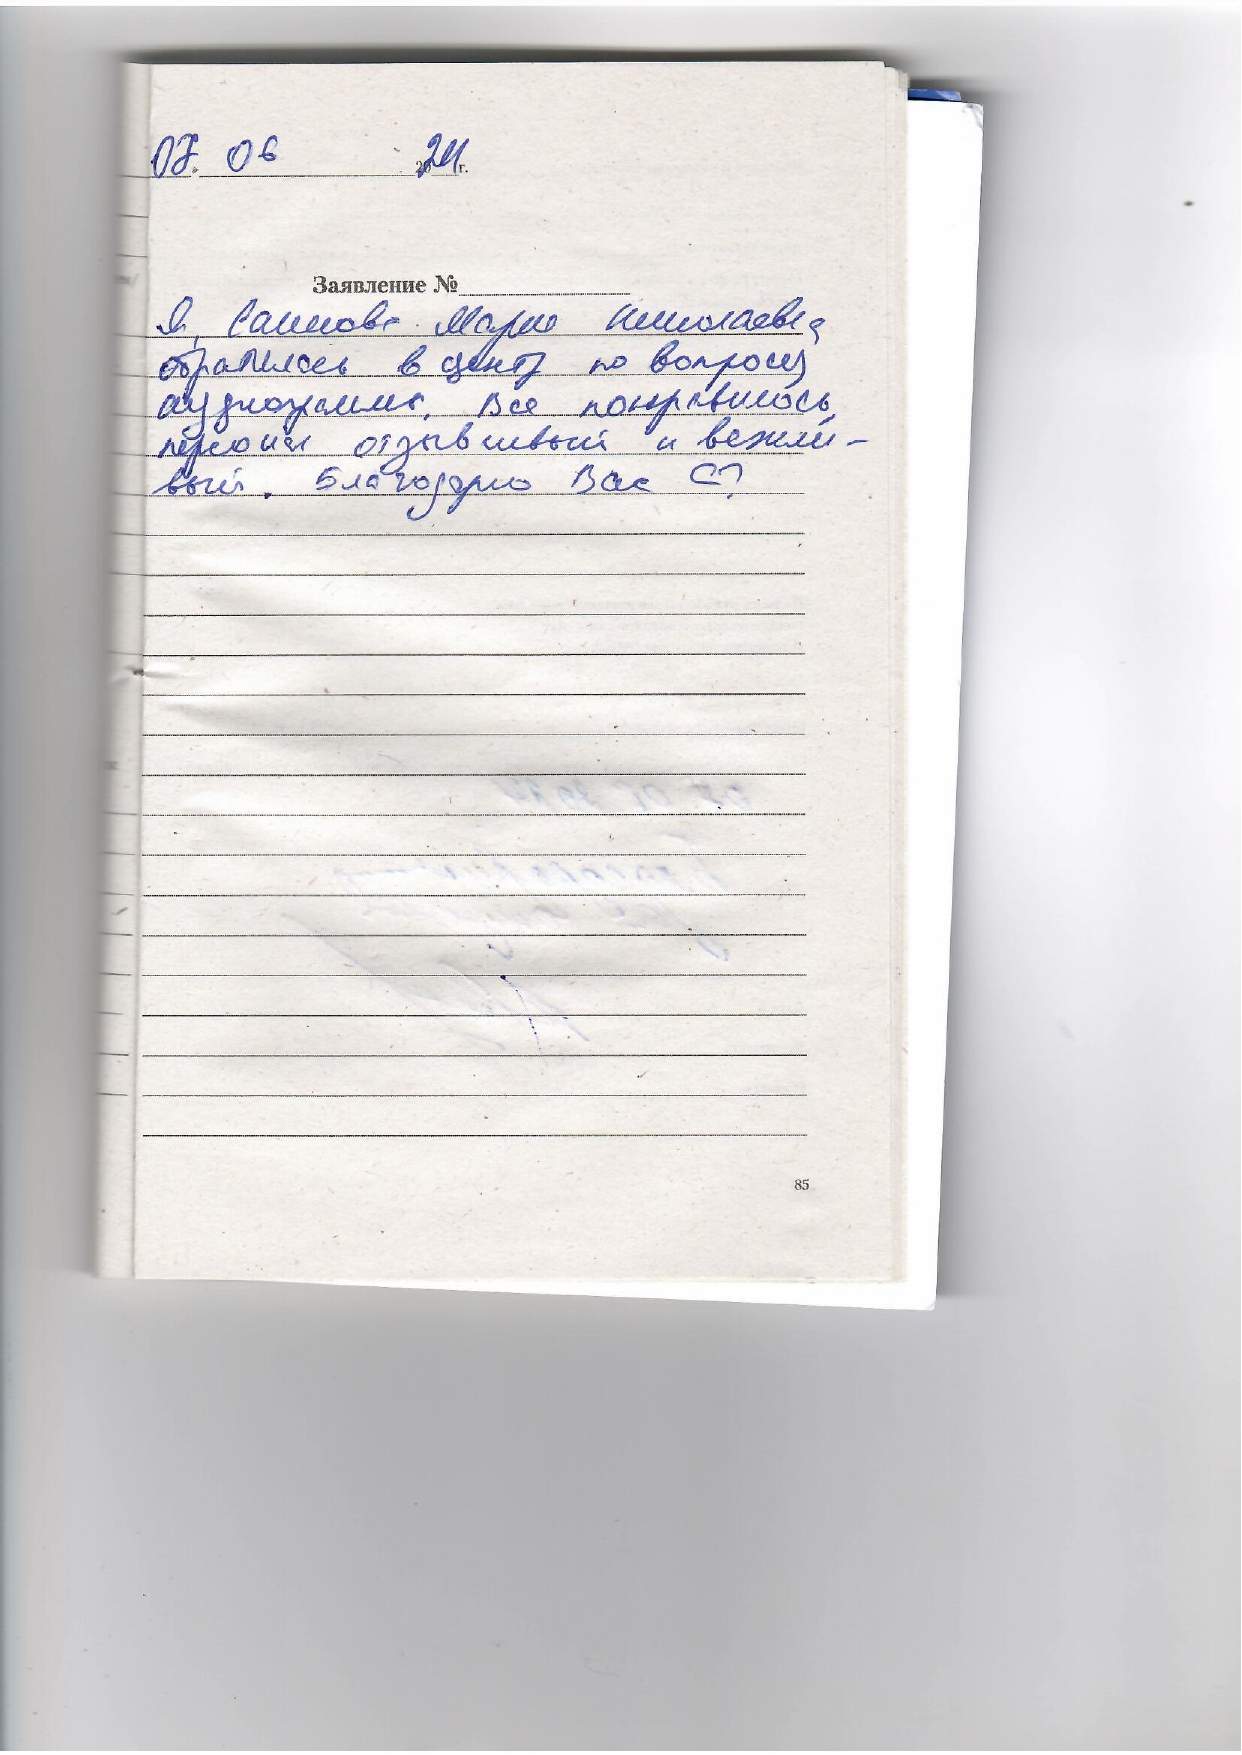 07. 06 2024 г.
Заявление №
Я, Мария Николаевна
обратилась в центр по вопросу
аудиограммы. Все понравилось,
персонал отзывчивый и вежли-
вый. Благодарю Вас
85